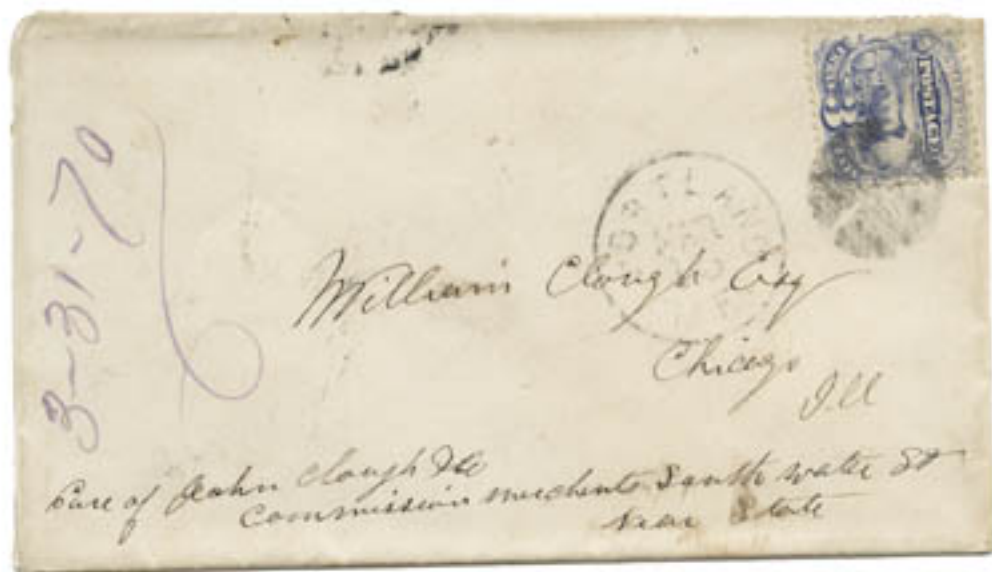 3-31-70
POSTAGE
William Clough Esq
Chicago
Ill
Care of John Clough &Co
Commission merchants South water St
Near State